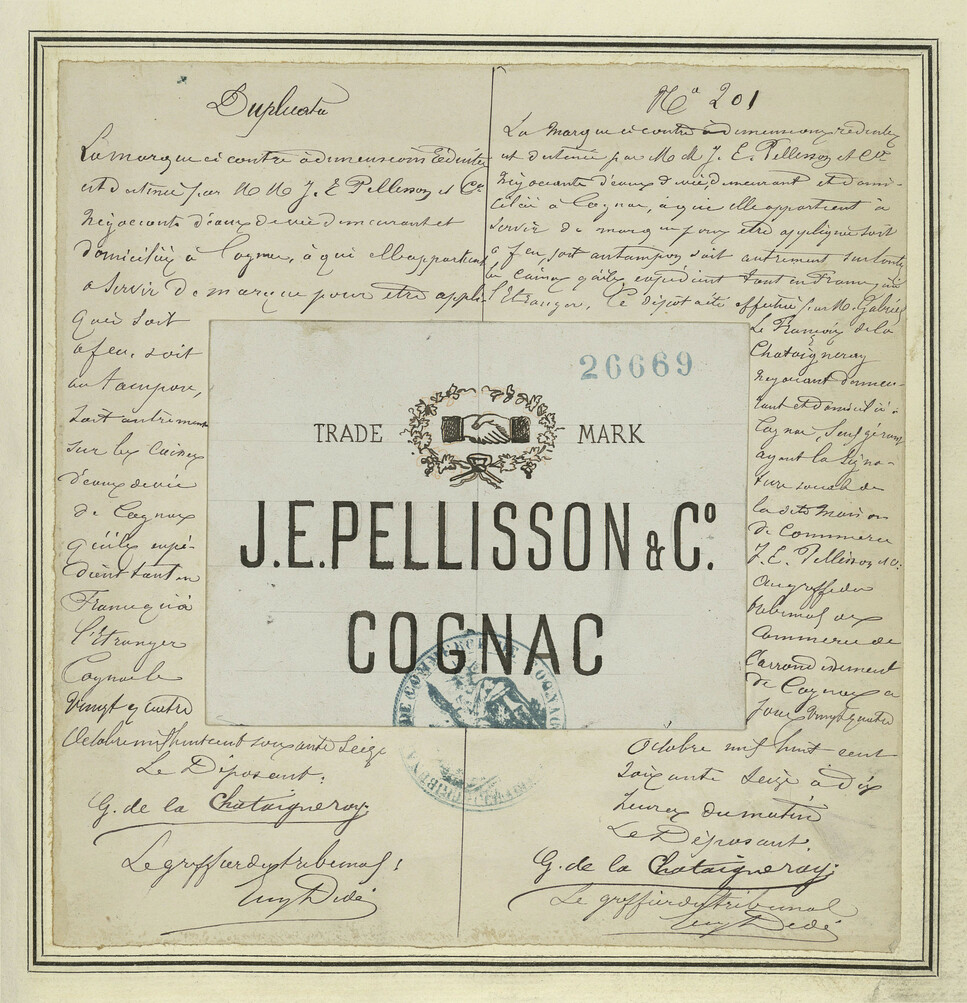 Duplicata
La marque ci contre à dimensions réduites
est destinée par M M J. E Pellisson et Cie
Négociants d'eaux de vie demeurant et
domiciliés à Cognac, à qui elle appartient
à servir de marque pour être appli-
quée soit
à feu, soit
au tampon,
soit autrement
sur les caisses
d'eaux de vie
de Cognac
qu'ils expé-
dient tant en
France qu'à
l'Etranger
Cognac le
Vingt quatre
Octobre mil huit cent soixante seize
Le Déposant:
G. de la Chataigneray
Le greffier du tribunal:
Didé
No 201
La marque ci contre à dimensions réduites
est destinée par M M J. E. Pellisson et Cie
Négociants d'eaux de vie, demeurant et domi-
ciliés à Cognac, à qui elle appartient à
servir de marque pour être appliquée soit
à feu, soit au tampon soit autrement sur toutes
les caisses qu'ils expédient tant en France, qu'à
l'Etranger. Ce dépôt a été effectué par M. Gabriel
Le François de la
Chataigneray
Négociant demeu-
rant et domicilié à
Cognac, seul gérant
ayant la signa-
ture sociale de
la dite Maison
de Commerce
J. E. Pellisson et Cie
au greffe du
tribunal de
Commerce de
l'arrondissement
de Cognac ce
jour Vingt quatre
Octobre mil huit cent
soixante seize à dix
heures du matin
Le Déposant:
G. de la Chataigneray
Le greffier du tribunal
Didé
26669
TRADE MARK
J.E.PELLISSON & Co.
COGNAC
DE COMMERCE DE COGNAC